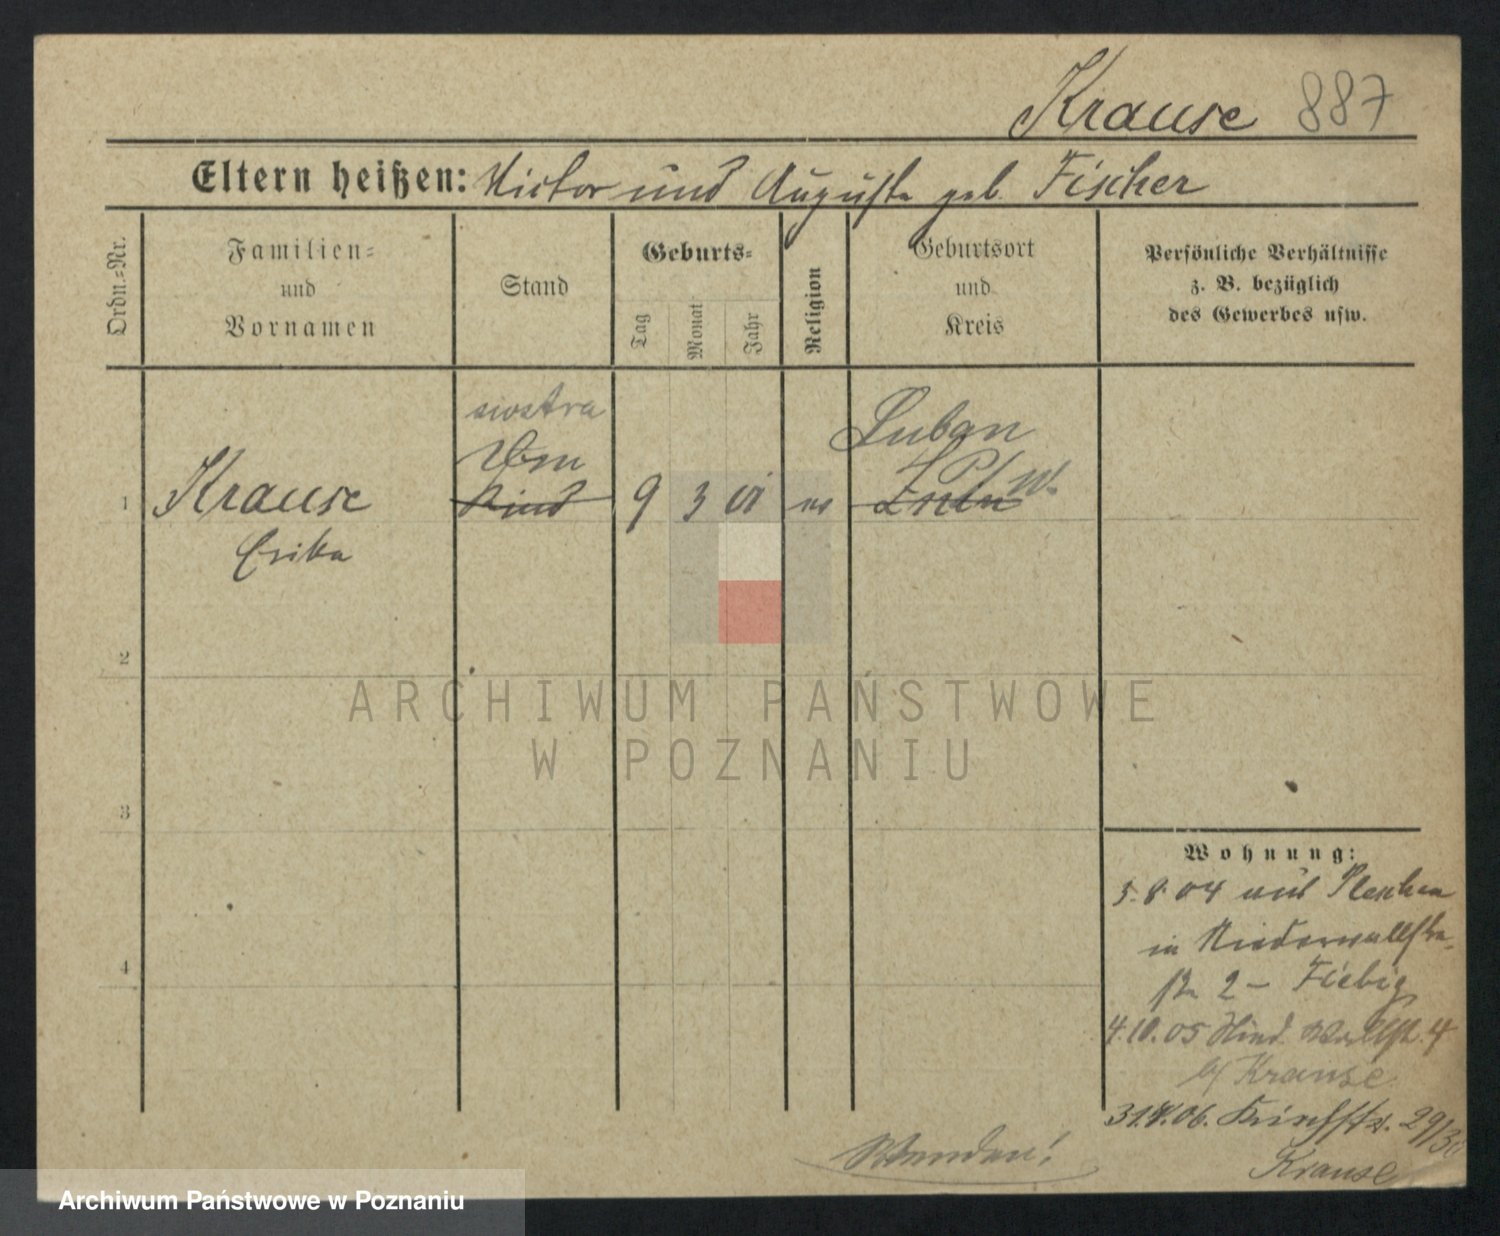 Krause 887
Eltern heißen: Victor und Auguste geb. Fischer
Ordn.-Nr.
Familien-
und
Vornamen
Stand
Geburts-
Tag
Monat
Jahr
Religion
Geburtsort
und
Kreis
Persönliche Verhältnisse
z. B. bezüglich
des Gewerbes usw.
siostra
Luban
1 Krause Kind 9 3 01
Erika
2
3
4
Wohnung:
5.8.04 aus Pleschen
in Niederwallstra-
ße 2 - Fiebig
4.10.05 Wallstr. 4
b/ Krause
06. 29/30
Krause
Wenden!
ARCHIWUM PAŃSTWOWE
W POZNANIU
Archiwum Państwowe w Poznaniu